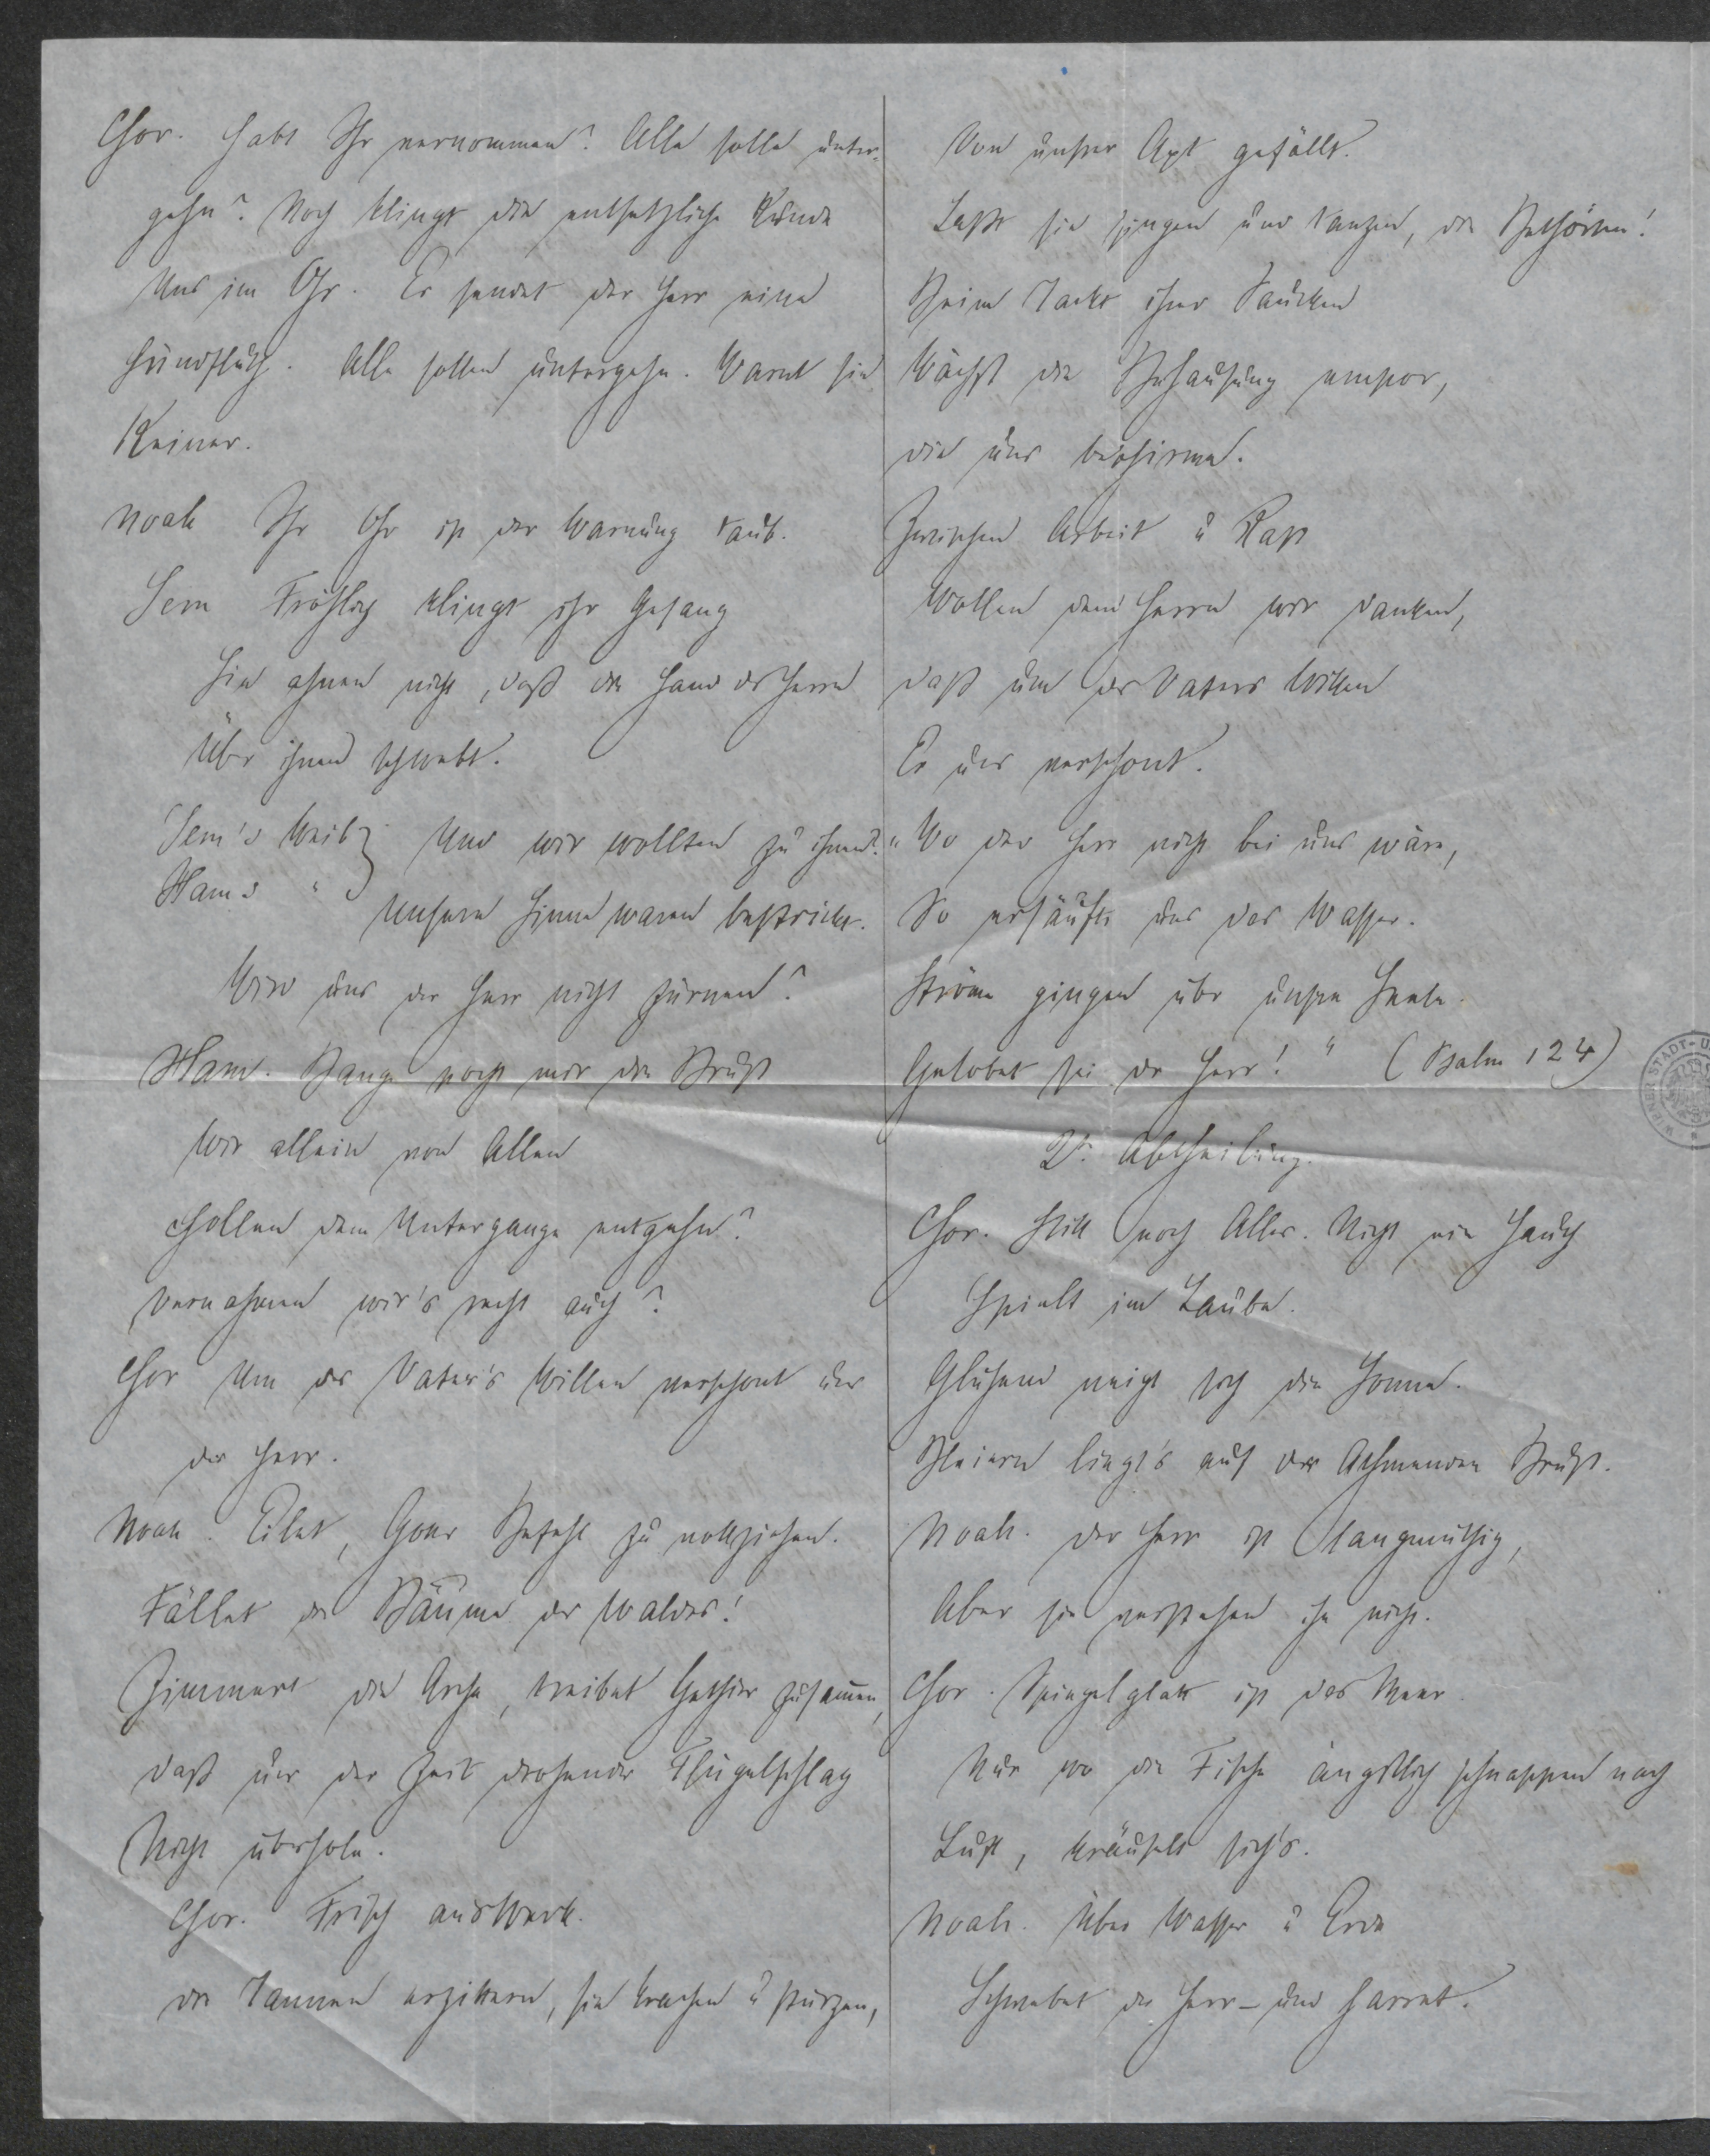 Chor. Habt Ihr vernommen? Alle solle unter-
gehn? Noch klingt die entsetzliche Kunde
Uns im Ohr. Es sendet der Herr eine
Sündfluth. Alle sollen untergehn. Warnt sie
Keiner.
Noah Ihr Ohr ist der Warnung taub.
Sem Fröhlich klingt ihr Gesang
Sie ahnen nicht, daß die Hand des Herrn
Über ihnen schwebt.
Sem's Weib } Und wir wollten zu ihnen?
Ham's "
Unsere Sinne waren bestrickt.
Wird uns der Herr nicht zürnen?
Ham. Bange pocht mir die Brust
Wir allein von Allen
Sollen dem Untergange entgehn?
Vernahmen wir's recht auch?
Chor Um des Vater's Willen verschont uns
der Herr.
Noah. Eilet, Gottes Befehl zu vollziehen.
Fället die Bäume des Waldes!
Zimmert die Arche, treibet Gethier zusammen,
daß uns der Zeit drohender Flügelschlag
Nicht überhole.
Chor. Frisch ans Werk.
die Tannen erzittern, sie krachen u stürzen,
Von unsrer Axt gefällt.
Laßt sie singen und tanzen, die Bethörten!
Beim Takt ihrer Paucken
Wächst die Behausung empor,
die uns beschirme.
Zwischen Arbeit u Rast
Wollen dem Herrn wir danken,
daß um des Vaters Willen
Er uns verschont.
"Wo der Herr nicht bei uns wäre,
So ersäufte uns das Wasser.
Ströme gingen über unsre Seele.
Gelobet sei der Herr!" (Psalm 124)
2te Abtheilung.
Chor. Still noch Alles. Nicht ein Hauch
Spielt im Laube.
Glühend neigt sich die Sonne.
Bleiern liegt's auf der Athmenden Brust.
Noah. der Herr ist langmüthig,
Aber sie verstehen ihn nicht.
Chor. Spiegelglatt ist das Meer.
Nur wo die Fische ängstlich schnappen nach
Luft, kräuselt sich's.
Noah. Über Wasser u Erde
Schwebet der Herr – und harret.
WIENER STADT-